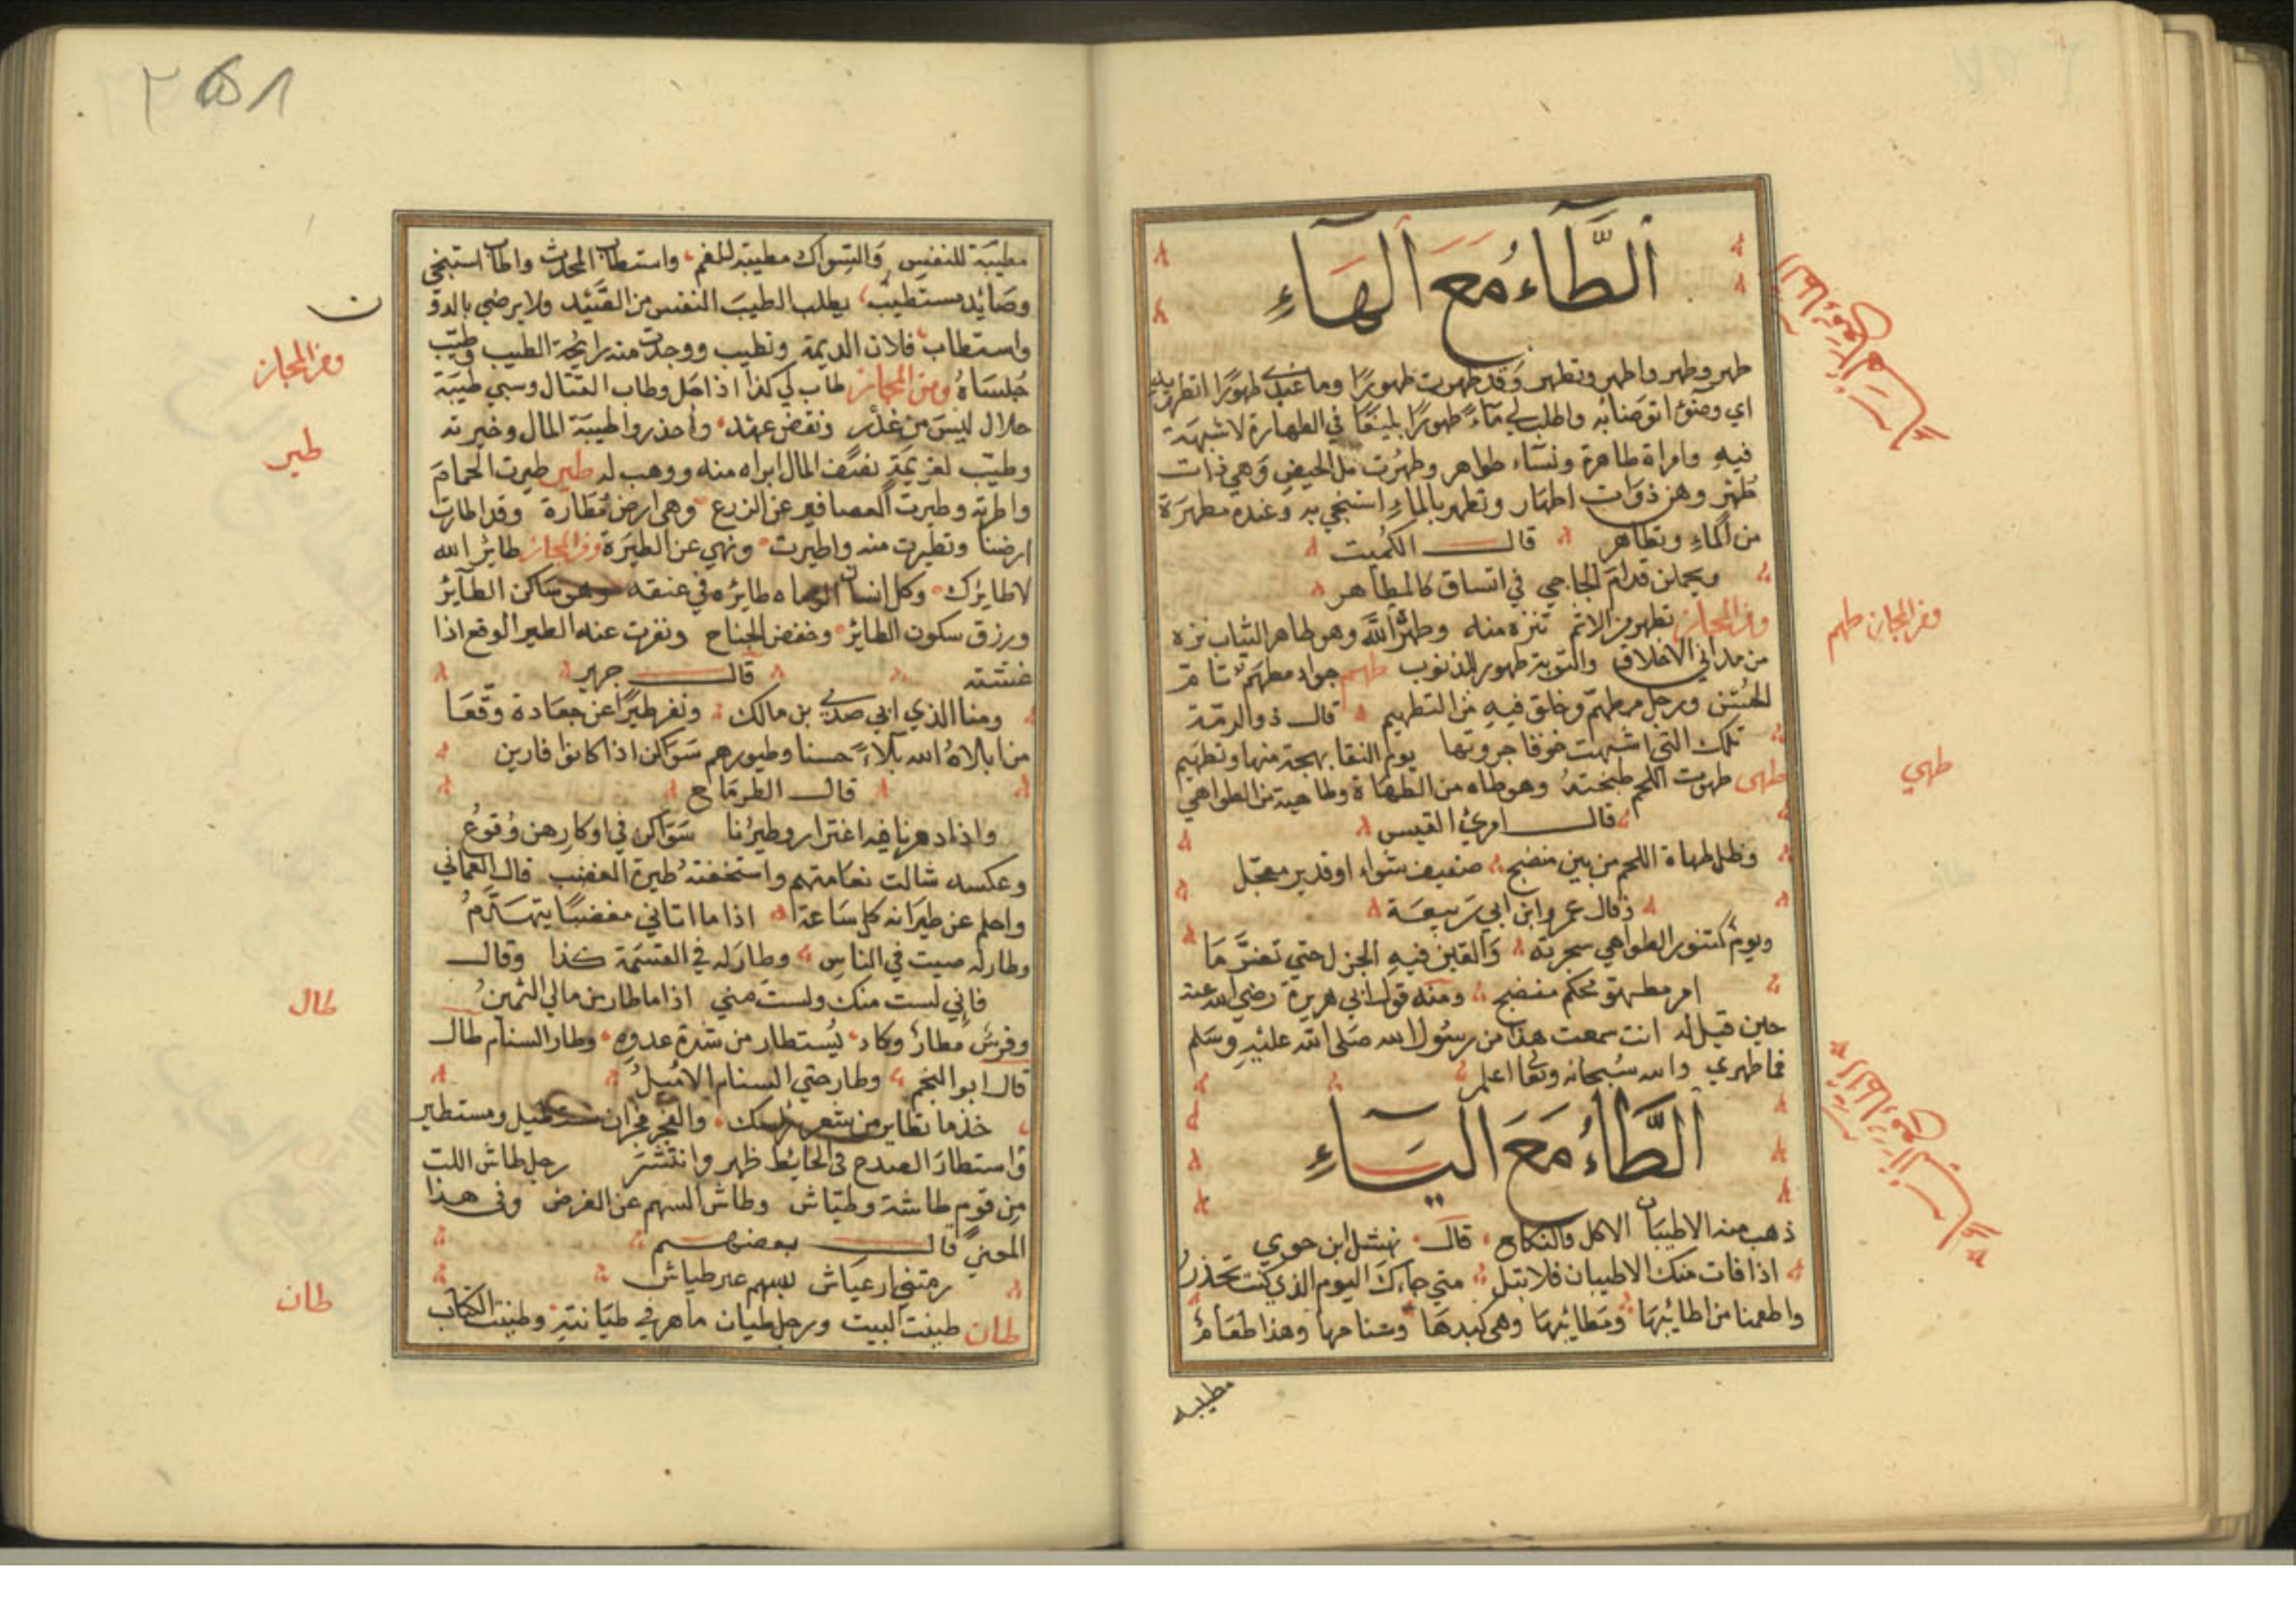 الطَّاءُ مَعَ الهَاءِ
طهر وطهر واطهر وتطهر وَقد طهرت طهورًا وما عندي طهورًا اتطهر به
اي وضوءٌ اتوضئابه واطلب لي مَآءً طهورًا بليغًا في الطهارة لا شبهة
فيهِ وامراة طاهرة ونسَاء طواهر وطهُرت من الحيض وَهي ذات
طُهْرٍ وهن ذوَات اطهَار وتطهر بالماءِ استنجي به وَعنده مطهرَة
من المآءِ وتطاهر قال الكُميت
ويحملن قدامَ الجاجي في اتساق كالمطاهر
ومن المجاز تطهر من الاثم تنزه منه وطهرهُ اللّه وهو طاهر الثياب نزه
من مداني الاخلاق والتوبة طهور للذنوب طهم جواد مطهم تام
الحُسْن ورجل مطهم وخلق فيهِ من التطهيم قال ذو الرمة
تلك التي اشبهت خرقا جروتها يوم النقا بهجة منها وتطهيم
طهى طهوت اللحم طبختهُ وهو طاه من الطهَاة وطاهية من الطواهي
قال امرئ القيس
وظل طهاة اللحم من بين منضج صفيف شواء او قدير معجّل
وقال عمرو ابن ابي ربيعَة
ويوم كتنور الطواهي سجرته وَالقين فيهِ الجزل حتي تضرَّ مَا
امر مطهو محكم منضج ومنه قول ابي هريرة رضي الله عنه
حين قيل له انت سمعت هذا من رسُول الله صَلى الله عليْهِ وسَلم
فما طهوي والله سُبحانه وتعا اعلم
الطَّاءُ مَعَ اليَاءِ
ذهب منه الاطيبَان الاكل والنكاح قال نهشل ابن حري
اذا فات منك الاطيبان فلا تبل متي جاءك اليوم الذي كنت تحذرُ
واطعمنا من اطائبهَا ومَطائبهَا وهي كبدهَا وسَنامها وهذا طعَامٌ
مطيبه
ومن المجاز طهم
طهي
مطيبَة للنفسِ وَالسّواك مطيبة للفم واستطاب المحدث واطاب استنجي
وصَائد مستطيب يطلب الطيبَ النفس من الصَّيد ولا يرضي بالدون
واستطاب فلان الديمة وتطيب ووجدت منه رايحة الطيب وطيّب
جُلسَاهُ ومن المجاز طاب لي كذا اذا حل وطاب القتال وسبي طيبَة
حلال ليسَ من غدْر ونقض عهد وأحذر واطيبة المال وخيرته
وطيّب لغريمَةِ نصف المال ابراه منه ووهب له طير طيرت الحمامَ
واطرته وطيرت العصافير عن الزرع وهي ارض مُطارة وقد اطارت
ارضنا وتطيرت منه واطيرت ونهي عن الطيَرة ومن المجاز طايرُ الله
لا طايرك وكل انسان الزمناه طايره في عنقه وهو سَاكن الطآيرُ
ورزق سكون الطاير وخفض الجناح ونفرت عنه الطير الوقع اذا
غششته قال جرير
ومنا الذي ابي صدي بن مالك ونفر طيرًا عن جعَادة وقّعَا
من ابلاهُ الله بَلاءً حسنا وطيورهم سَواكن اذا كانوا قارين
قال الطرماح
واذا دهرنا فيه اغترار وطيرُنا سَواكن في اوكارهن وُقوعُ
وعكسه شالت نعَامتهم واستخفتهُ طيرة الغضب قال العماني
واحلم عن طيرَانه كل سَاعة اذا ما اتاني مغضبًا يتهَزَّمُ
وطار له صيت في الناسِ وطارَ له في القسْمَة كذا وقال
فإني لست منك ولست مني اذا ما طار من مالي الثمينُ
وفرسٌ مطارٌ وكاد يُستطار من شدة عدوهِ وطار السنام طال
قال ابو النجم وطار حتي السنام الاميلُ
خذ ما تطاير من شعر راسك والفجر فجران مستطيل ومستطير
وَاستطارَ الصدع في الحايط ظهر وانتشرَ رجل طاش اللت
مِن قوم طاشة وطيّاش وطاش السهم عن الغرض وفي هذا
المعني قال بعضهم
رمتني ارعيَاش بسهم غير طياش
طان طينت البيت ورجل طيان ماهر في طيَانتهِ وطينت الكتاب
ن
ومن المجاز
طير
طال
طان